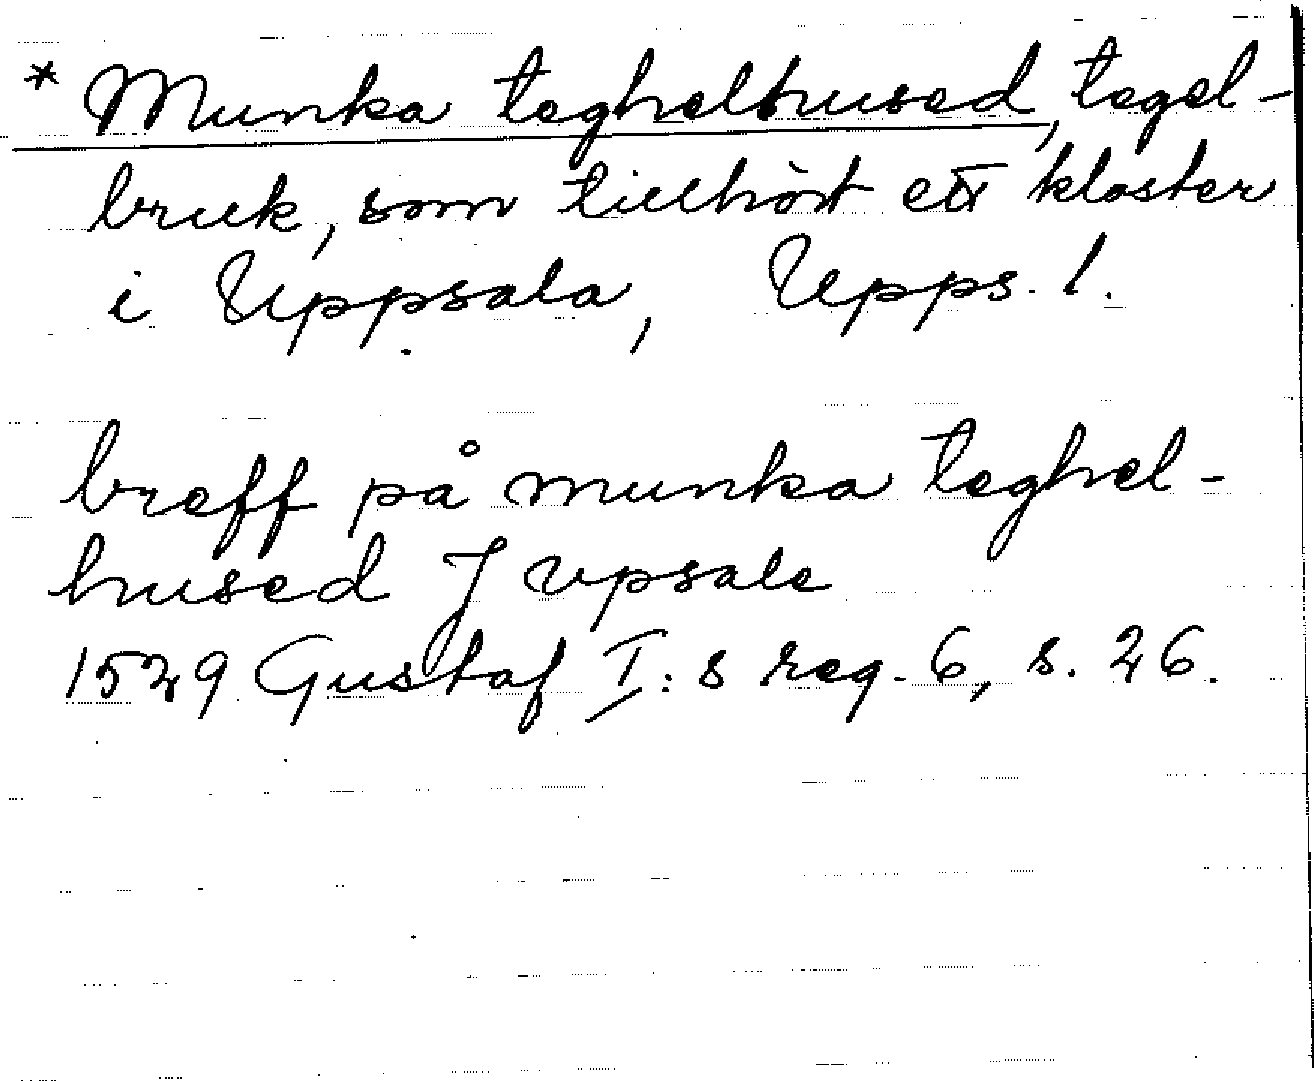 * Munka teghelhused, tegel-
bruk, som tillhört ett kloster
i Uppsala, Upps. l.
breff på munka teghel-
hused J vpsale
1529 Gustaf I:s reg. 6, s. 26.